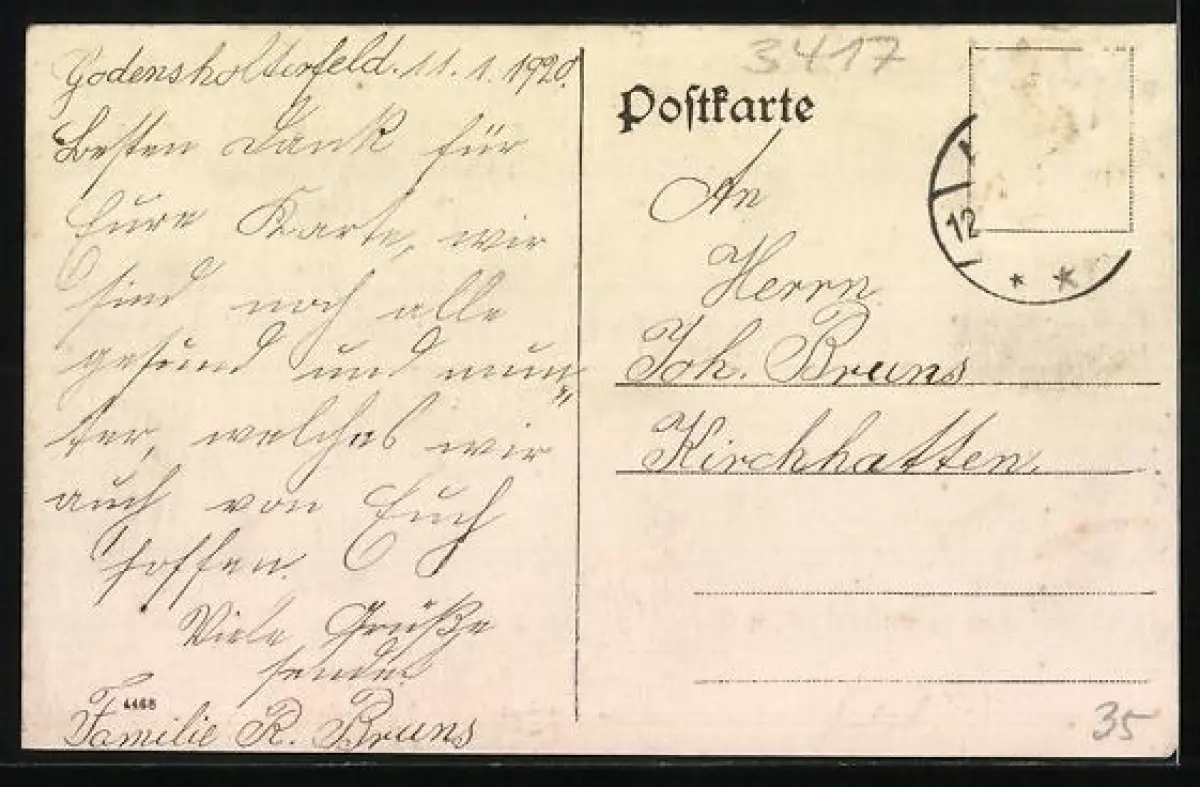 Godensholterfeld. 11. 1. 1920.
Besten Dank für
Eure Karte, wir
sind noch alle
gesund und mun"
ter, welches wir
auch von Euch
hoffen.
Viele Grüße
sendet
Familie R. Bruns
4468
3417
Postkarte
12
An
Herrn
Joh. Bruns
Kirchhatten.
35